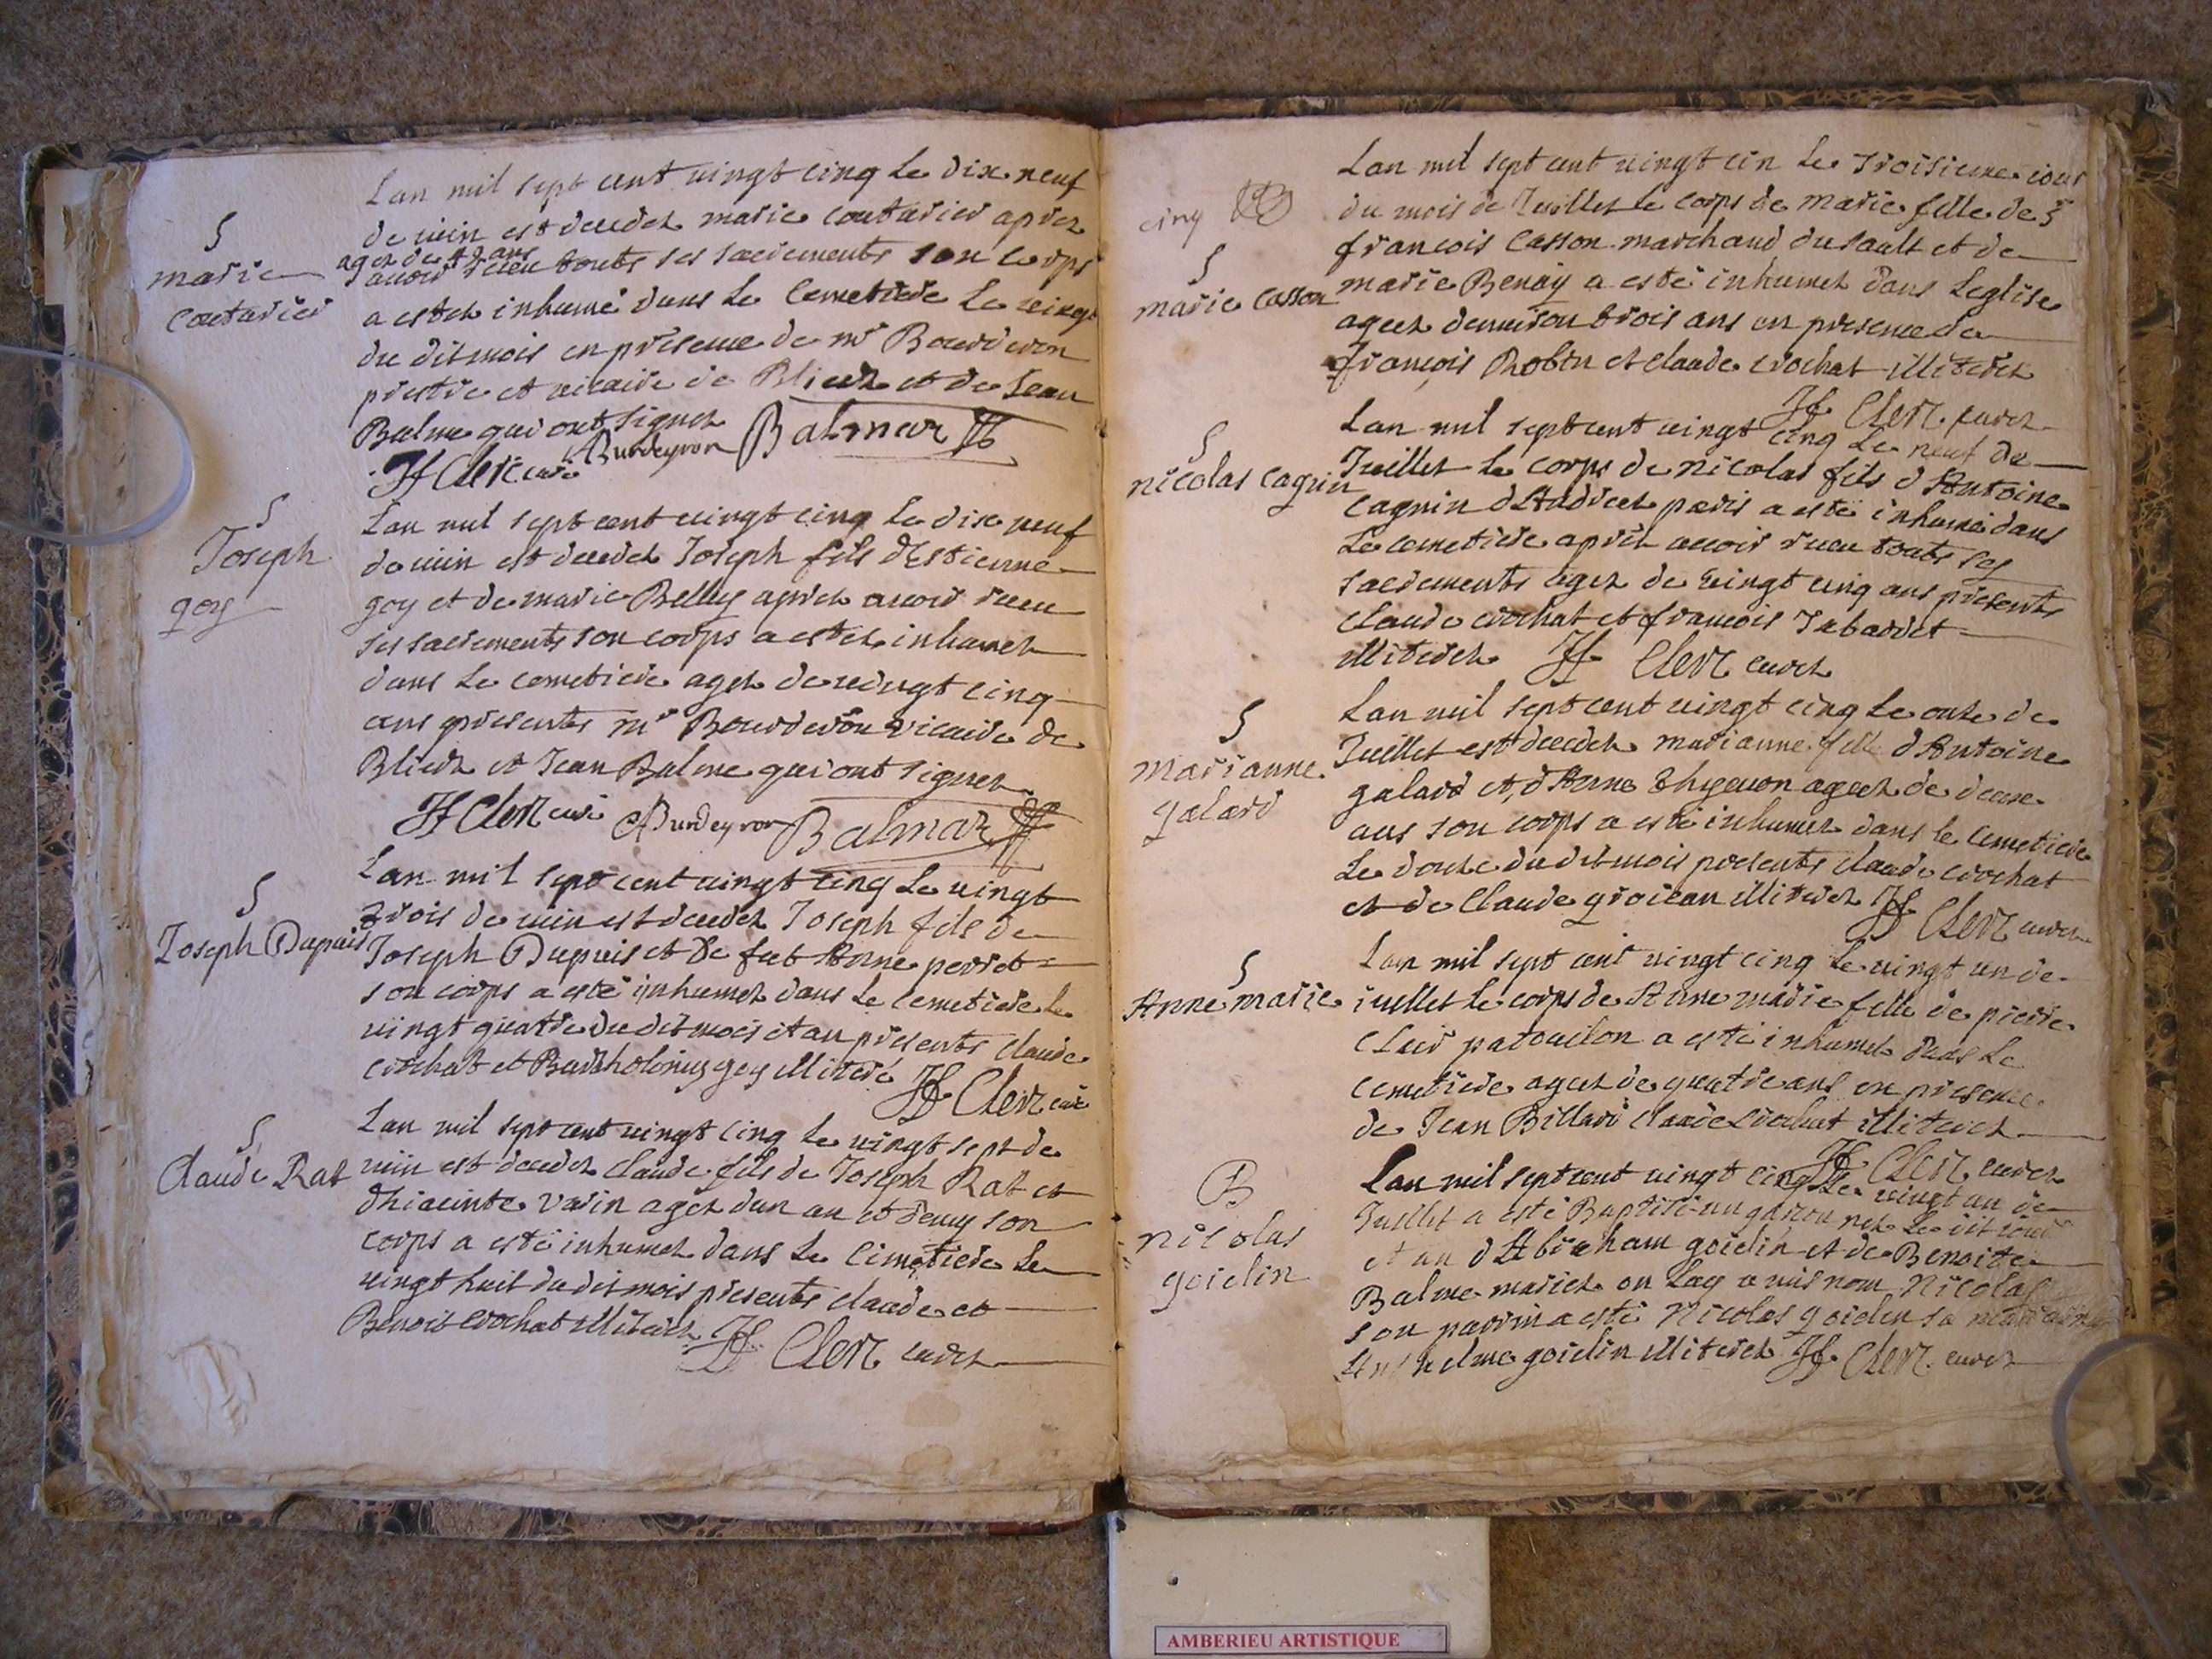 Lan mil sept cent uingt cinq Le dix neuf
de iuin est decedez marie couturier aprez
agez de ans
auoir receu touts ses sacrements son corps
a estez inhumé dans Le Cemetiere Le uingt
du dit mois en presence de mr Bourderon
prestre et uicaire de Blieux et de Jean
Balme qui ont signez
S
marie
couturier
H Clerc curé Burdeyron Balmar
Lan mil sept cent uingt cinq Le dix neuf
de iuin est decedez Joseph fils dEstienne
goy et de marie Belley aprez auoir receu
ses sacrements son corps a estez inhumez
dans Le cemetiere agez de uingt cinq
ans presents mr Bourderon vicaire de
Blieux et Jean Balme qui ont signez
S
Joseph
goy
H Clerc curé Burdeyron Balmar
Lan mil sept cent uingt cinq Le uingt
trois de iuin est decedez Joseph fils de
Joseph Dupuis et De feu Anne perret
son corps a esté inhumez dans Le Cemetiere le
uingt quatre du dit mois et an presents claude
crochat et Bartholomy goy illiteré
S
Joseph Dupuis
H Clerc curé
Lan mil sept cent uingt cinq Le uingt sept de
iuin est decedez claude fils de Joseph Rat et
dhiacinte varin agez dun an et demy son
corps a esté inhumez dans Le Cimetiere Le
uingt huit du dit mois presents claude et
Benoit crochat illiterez
S
Claude Rat
H Clerc curez
Lan mil sept cent uingt cin Le troisieme iour
du mois de Juillet Le corps de marie fille de S
francois Casson marchand du sault et de
marie Benoy a esté inhumez dans Leglise
agez denuiron trois ans en presence de
François Robin et claude crochat illiterez
cinq
S
marie Casson
H Clerc curez
Lan mil sept cent uingt cinq Le neuf de
Juillet Le corps de nicolas fils d Antoine
Cagnin a esté inhumé dans
Le cemetiere aprez auoir receu touts ses
sacrements agez de uingt cinq ans presents
claude crochat et francois Jabarret
illiterez H Clerc curez
S
nicolas Cagnin
Lan mil sept cent uingt cinq Le onze de
Juillet est decedez marianne fille d Antoine
galard et d Anne agez de
ans son corps a esté inhumez dans le Cemetiere
Le douze du dit mois presents claude crochat
et de Claude groiean illiterez
S
Marianne
galard
H Clerc curez
Lan mil sept cent uingt cinq Le uingt un de
iuillet Le corps de Anne marie fille de pierre
Clair patouilon a esté inhumez dans Le
cemetiere agez de quatre ans en presence
de Jean Billard claude crochat illiterez
S
Anne marie
H Clerc curez
Lan mil sept cent uingt cinq Le uingt un de
Juillet a esté Baptisé un garçon nez Le dit iour
et an d Abraham goielin et de Benoite
Balme mariez on Luy a mis nom Nicolas
son parrin a esté Nicolas goielin sa
goielin illiterez H Clerc curez
B
nicolas
goielin
AMBERIEU ARTISTIQUE